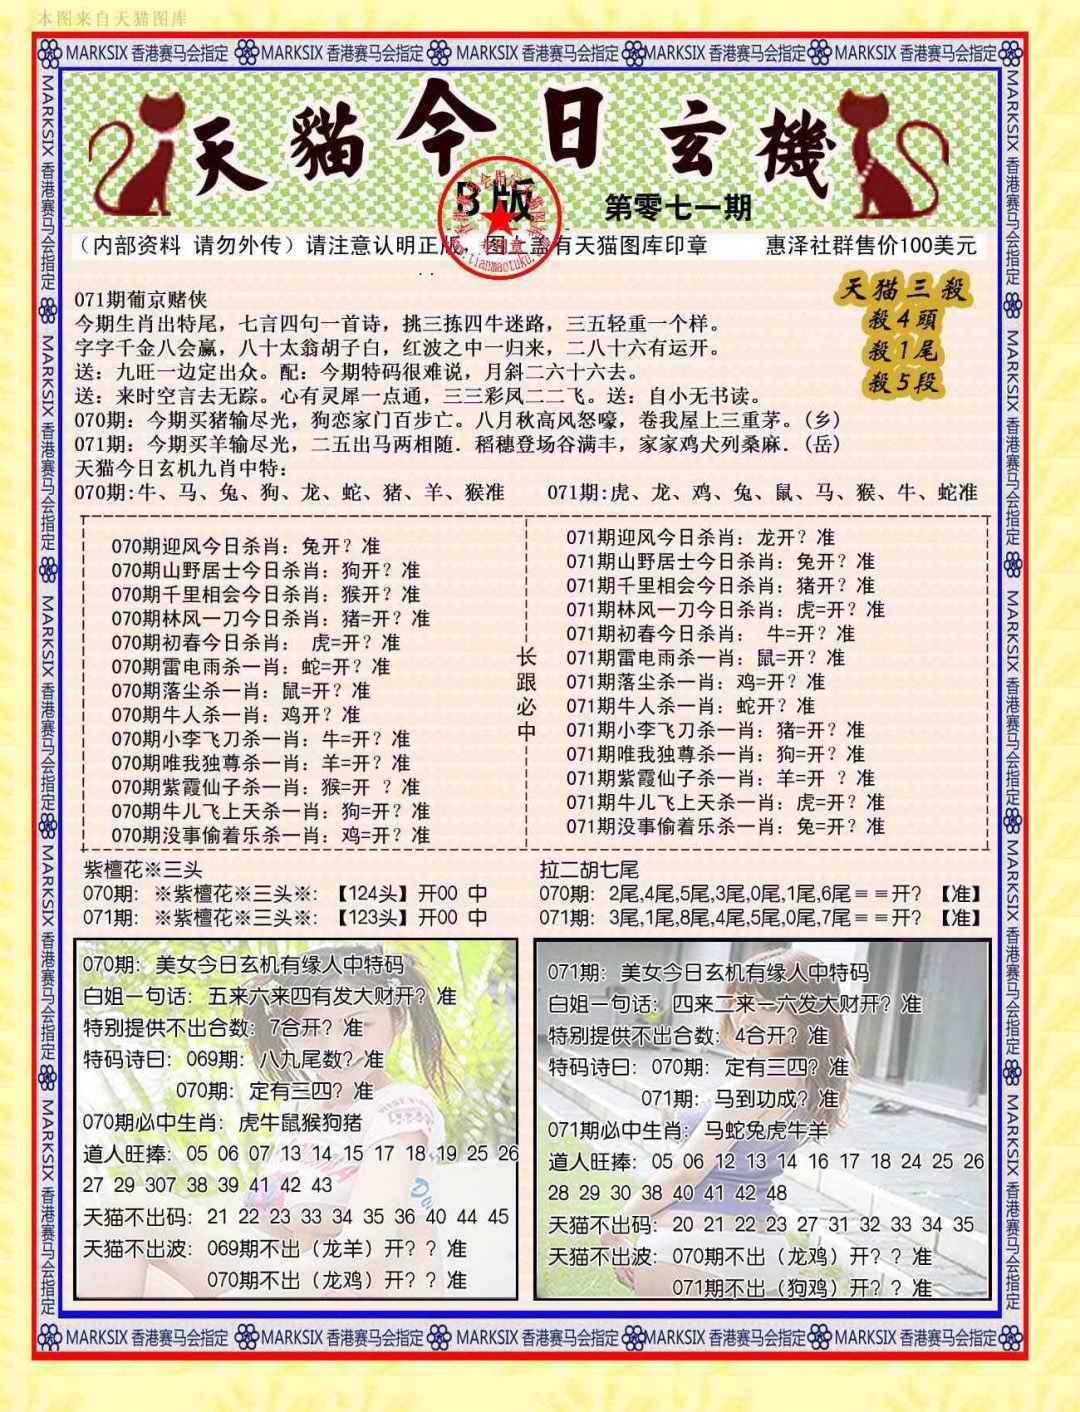 本图来自天猫图库
MARKSIX 香港赛马会指定 MARKSIX 香港赛马会指定 MARKSIX 香港赛马会指定 MARKSIX 香港赛马会指定 MARKSIX 香港赛马会指定
天貓今日玄機
B版
第零七一期
(内部资料 请勿外传)请注意认明正版,图上盖有天猫图库印章 惠泽社群售价100美元
天猫三殺
殺4頭
殺1尾
殺5段
071期葡京赌侠
今期生肖出特尾,七言四句一首诗,挑三拣四牛迷路,三五轻重一个样。
字字千金八会赢,八十太翁胡子白,红波之中一归来,二八十六有运开。
送:九旺一边定出众。配:今期特码很难说,月斜二六十六去。
送:来时空言去无踪。心有灵犀一点通,三三彩凤二二飞。送:自小无书读。
070期:今期买猪输尽光,狗恋家门百步亡。八月秋高风怒嚎,卷我屋上三重茅。(乡)
071期:今期买羊输尽光,二五出马两相随.稻穗登场谷满丰,家家鸡犬列桑麻.(岳)
天猫今日玄机九肖中特:
070期:牛、马、兔、狗、龙、蛇、猪、羊、猴准 071期:虎、龙、鸡、兔、鼠、马、猴、牛、蛇准
070期迎风今日杀肖:兔开?准
070期山野居士今日杀肖:狗开?准
070期千里相会今日杀肖:猴开?准
070期林风一刀今日杀肖:猪=开?准
070期初春今日杀肖: 虎=开?准
070期雷电雨杀一肖:蛇=开?准
070期落尘杀一肖:鼠=开?准
070期牛人杀一肖:鸡开?准
070期小李飞刀杀一肖:牛=开?准
070期唯我独尊杀一肖:羊=开?准
070期紫霞仙子杀一肖:猴=开 ?准
070期牛儿飞上天杀一肖:狗=开?准
070期没事偷着乐杀一肖:鸡=开?准
长跟必中
071期迎风今日杀肖:龙开?准
071期山野居士今日杀肖:兔开?准
071期千里相会今日杀肖:猪开?准
071期林风一刀今日杀肖:虎=开?准
071期初春今日杀肖: 牛=开?准
071期雷电雨杀一肖:鼠=开?准
071期落尘杀一肖:鸡=开?准
071期牛人杀一肖:蛇开?准
071期小李飞刀杀一肖:猪=开?准
071期唯我独尊杀一肖:狗=开?准
071期紫霞仙子杀一肖:羊=开 ?准
071期牛儿飞上天杀一肖:虎=开?准
071期没事偷着乐杀一肖:兔=开?准
紫檀花※三头
070期: ※紫檀花※三头※: 【124头】开00 中
071期: ※紫檀花※三头※: 【123头】开00 中
拉二胡七尾
070期: 2尾,4尾,5尾,3尾,0尾,1尾,6尾==开? 【准】
071期: 3尾,1尾,8尾,4尾,5尾,0尾,7尾==开? 【准】
070期:美女今日玄机有缘人中特码
白姐一句话:五来六来四有发大财开?准
特别提供不出合数:7合开?准
特码诗曰:069期:八九尾数?准
070期:定有三四?准
070期必中生肖:虎牛鼠猴狗猪
道人旺捧:05 06 07 13 14 15 17 18 19 25 26
27 29 307 38 39 41 42 43
天猫不出码:21 22 23 33 34 35 36 40 44 45
天猫不出波:069期不出(龙羊)开??准
070期不出(龙鸡)开??准
071期:美女今日玄机有缘人中特码
白姐一句话:四来二来一六发大财开?准
特别提供不出合数:4合开?准
特码诗曰:070期:定有三四?准
071期:马到功成?准
071期必中生肖:马蛇兔虎牛羊
道人旺捧:05 06 12 13 14 16 17 18 24 25 26
28 29 30 38 40 41 42 48
天猫不出码:20 21 22 23 27 31 32 33 34 35
天猫不出波:070期不出(龙鸡)开??准
071期不出(狗鸡)开??准
MARKSIX 香港赛马会指定 MARKSIX 香港赛马会指定 MARKSIX 香港赛马会指定 MARKSIX 香港赛马会指定 MARKSIX 香港赛马会指定